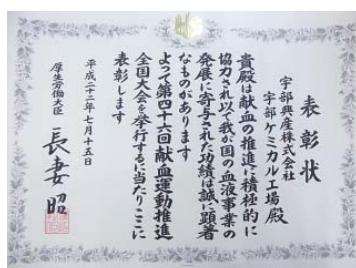 表彰状
宇部興産株式会社
宇部ケミカル工場殿
貴殿は献血の推進に積極的に
協力され以て我が国の血液事業の
発展に寄与された功績は誠に顕著
なものがあります
よって第四十六回献血運動推進
全国大会を挙行するに当たりここに
表彰します
平成二十二年七月十五日
厚生労働大臣
長妻昭